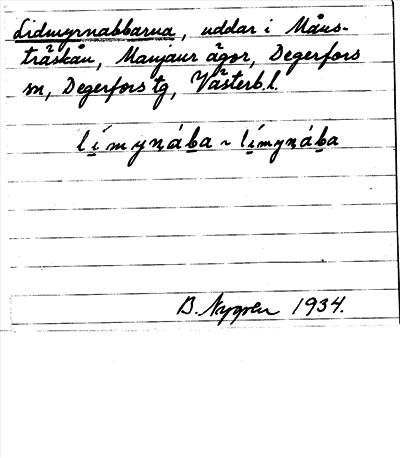 Lidmyrnabbarna, uddar i Måns-
träskån, Manjaur ägor, Degerfors
sn, Degerfors tg, Västerb. l.
límynába ~ límynába
B. Nygren 1934.